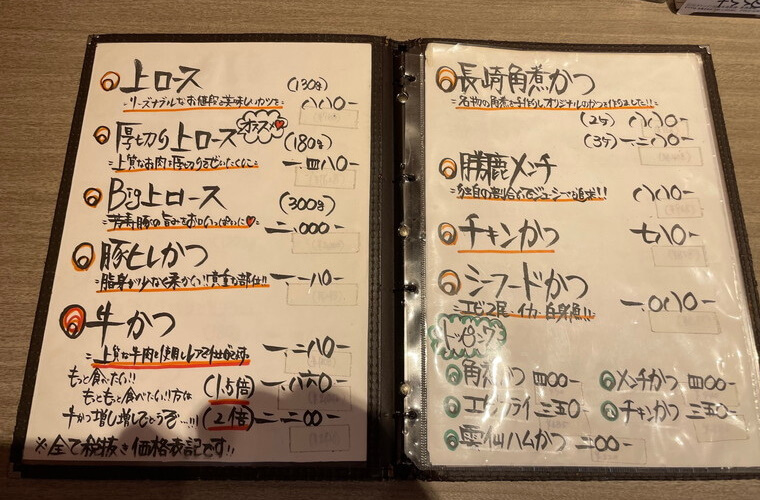 上ロース (130g)
リーズナブルなお値段の美味しいかつを
八八〇-
厚切り上ロース オススメ (180g)
上質なお肉を厚切りでぜいたくに
一.四八〇-
Big上ロース (300g)
芳寿豚の旨みをお口いっぱいに
二.〇〇〇-
豚ヒレかつ
脂身が少なく柔かい!!貴重な部位!!
一.一八〇-
牛かつ
上質な牛肉を使用しレアで仕上げです。
一.二八〇-
もっと食べたい!!
もっともっと食べたい!!方は
(1.5倍) 一.八六〇-
牛かつ増し増しでどうぞ…!!! (2倍) 二.二〇〇-
※全て税抜き価格表記です!!
長崎角煮かつ
名物の角煮を手作り。オリジナルのかつを作りました!!
(2ヶ) 八八〇-
(3ヶ) 一.二八〇-
勝鹿メンチ
独自の割合でジューシーさ追求!!
八八〇-
チキンかつ 七八〇-
シーフードかつ
エビ2尾・イカ・白身魚!!
一.〇八〇-
トッピング
角煮かつ 四〇〇- メンチかつ 四〇〇-
エビフライ 三五〇- チキンかつ 三五〇-
雲仙ハムかつ 二〇〇-